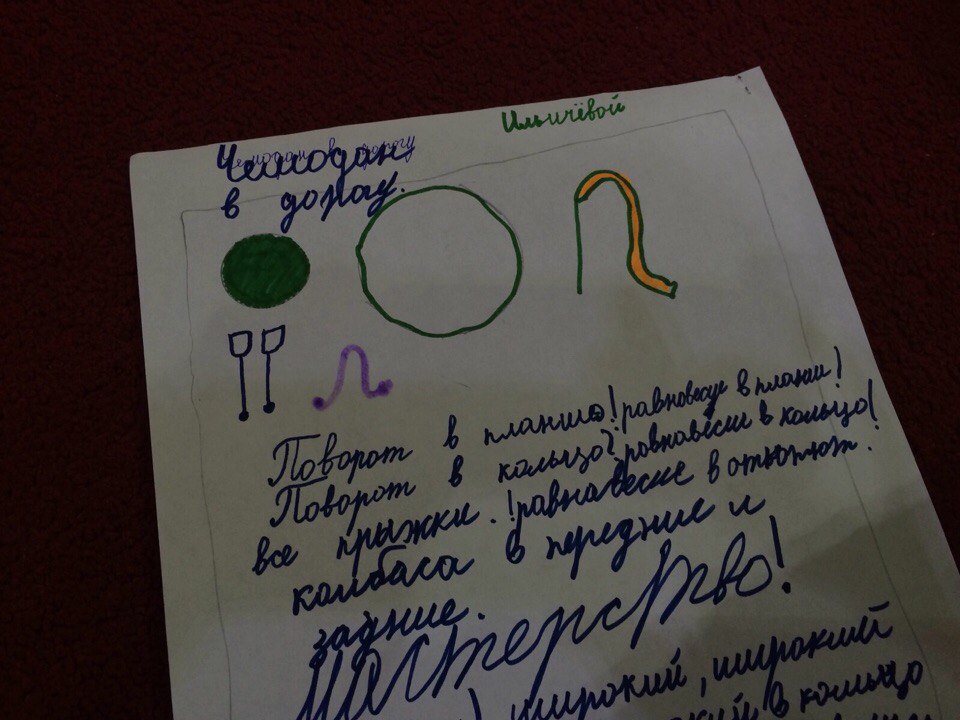 Ильичёвой
Чемодан
в дорогу.
Поворот в планше! равновесие в планше!
Поворот в кольцо? равнавесие в кольцо!
все прыжки. !равнавесие в
колбаса в передние и
задние.
Мастерство!
широкий, широкий
в кольцо